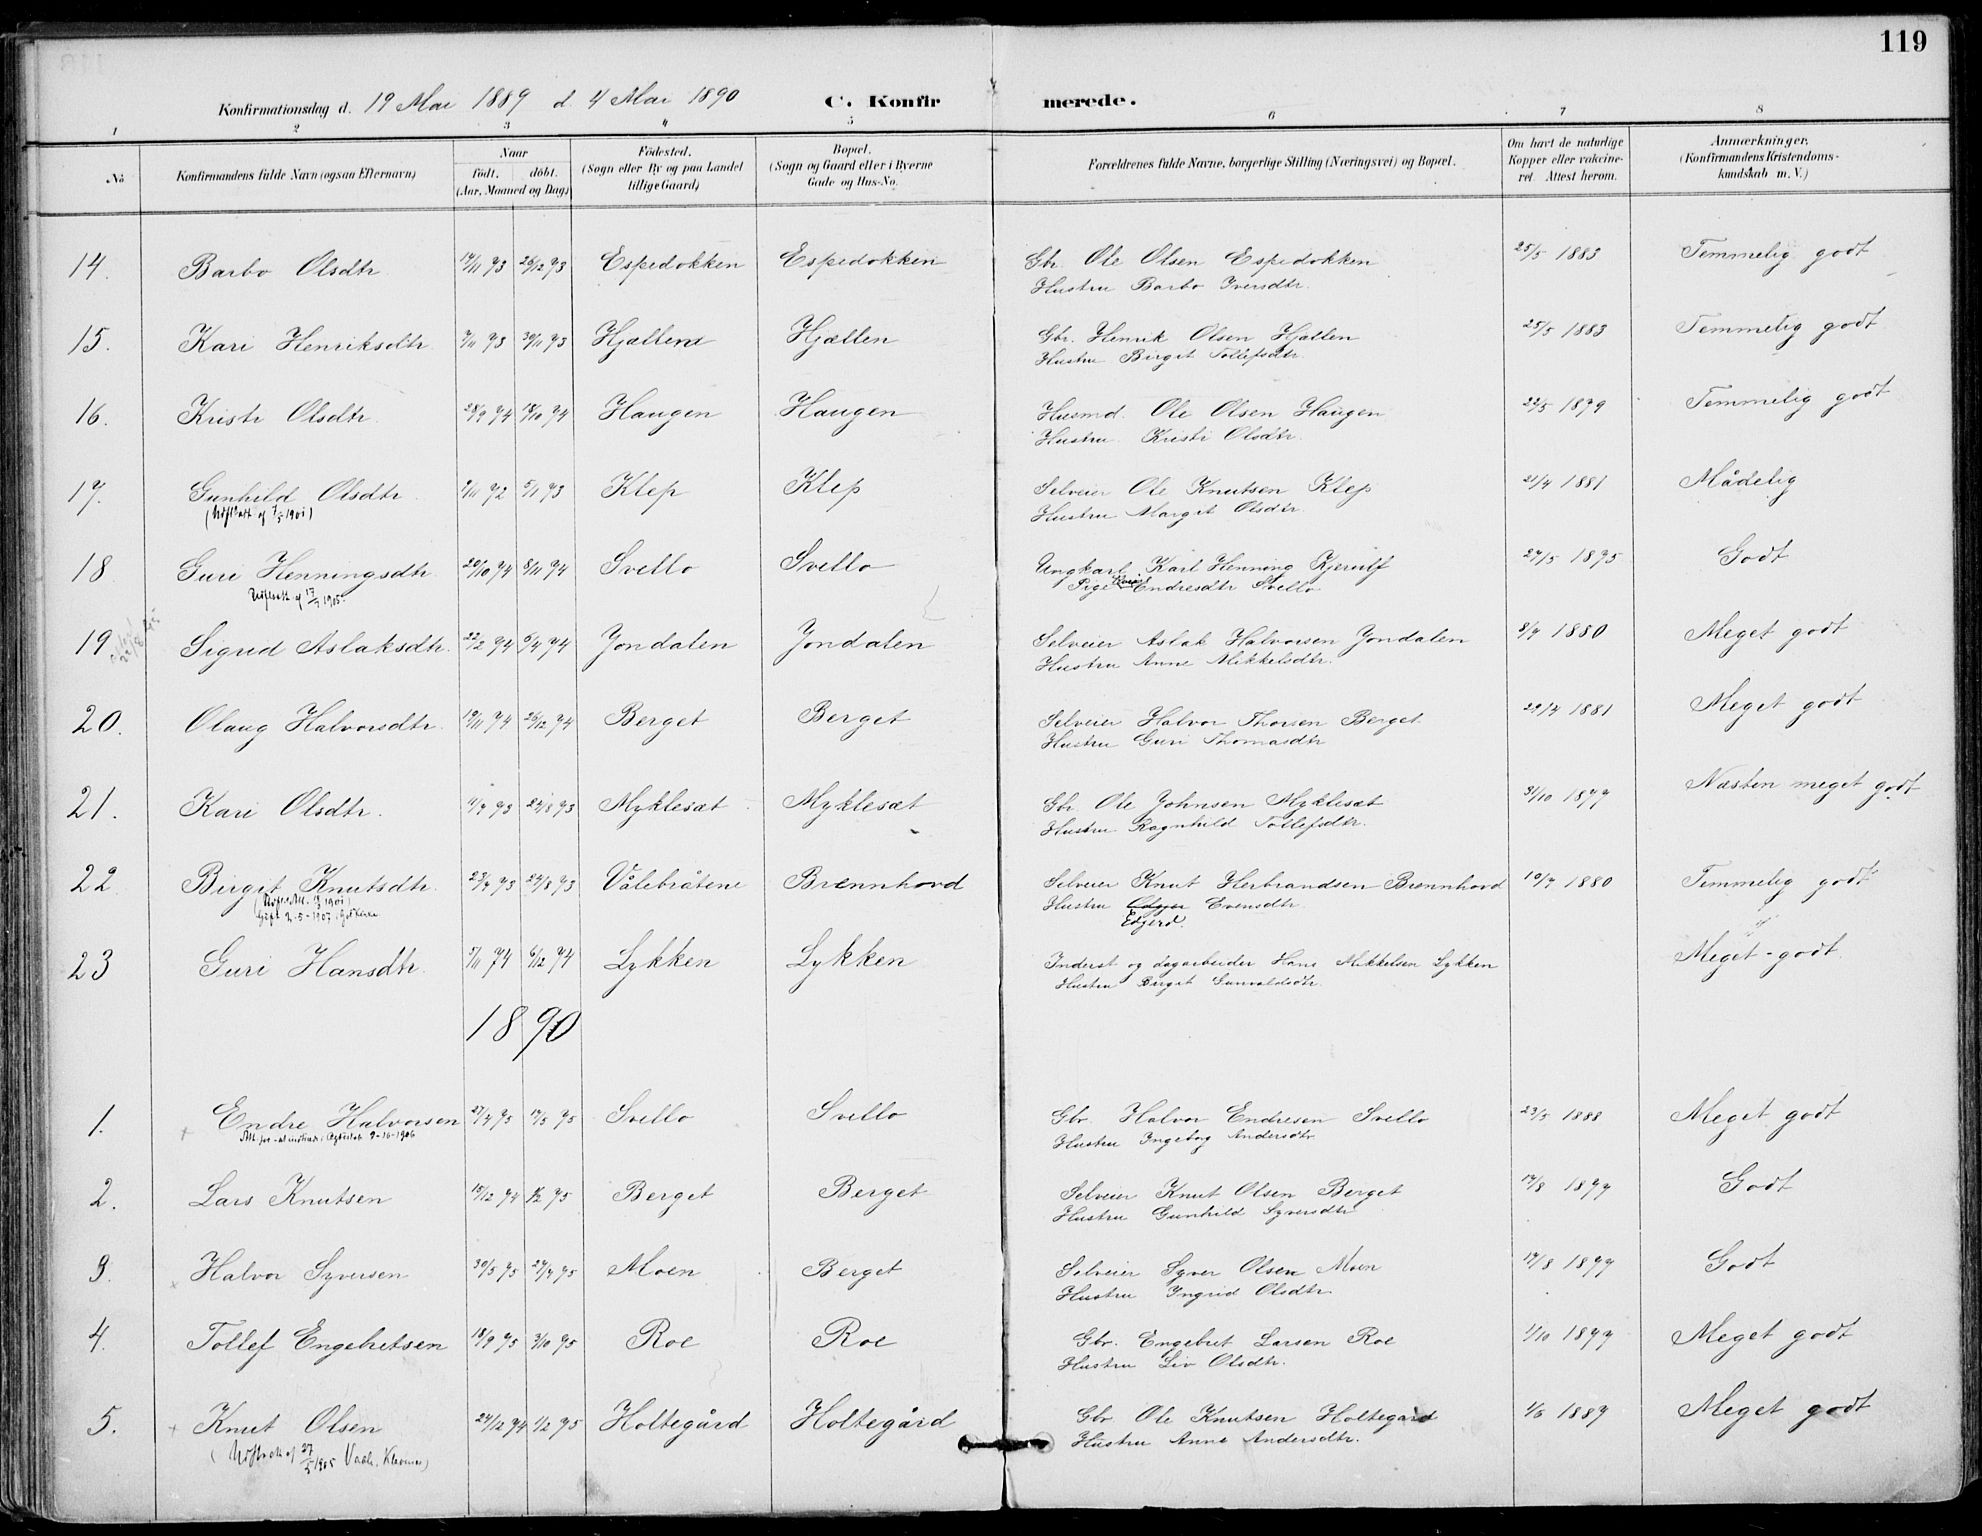 119
Konfirmationsdag d. 19 Mai 1889 d. 4 Mai 1890 C. Konfirmerede.
1 2 3 4 5 6 7 8
No Konfirmandens fulde Navn (ogsaa Efternavn) Naar født. døbt. (Aar, Maaned og Dag) Fødested. (Sogn eller By og paa Landet tillige Gaard) Bopæl. (Sogn og Gaard eller i Byerne Gade og Hus-No. Forældrenes fulde Navne, borgerlige Stilling (Næringsvei) og Bopæl. Om havt de naturlige Kopper eller vakcineret. Attest herom. Anmærkninger. (Konfirmandens Kristendomskundskab m. V.)
14. Barbo Olsdtr 14/11 73 26/12 73 Espedokken Espedokken Gbr. Ole Olsen Espedokken 25/5 1883 Temmelig godt
Hustru Barbo Iversdtr.
15. Kari Henriksdtr. 7/11 73 30/11 73 Hjællen Hjællen Gbr. Henrik Olsen Hjællen 25/5 1883 Temmelig godt
Hustru Birget Tollefsdtr.
16. Kristi Olsdtr. 28/9 74 18/10 74 Haugen Haugen Husmd. Ole Olsen Haugen 22/5 1879 Temmelig godt
Hustru Kristi Olsdtr.
17. Gunhild Olsdtr. 9/11 72 5/1 73 Klep Klep Selveier Ole Knutsen Klep 21/4 1881 Mådelig
Hustru Marget Olsdtr.
18 Guri Henningsdtr. 20/10 74 8/11 74 Svello Svello Ungkarl Karl Henning Kjerulf 27/5 1875 Godt
Pige Endresdtr Svello
19 Sigrid Aslaksdtr. 22/2 74 6/4 74 Jondalen Jondalen Selveier Aslak Halvorsen Jondalen 8/7 1880 Meget godt
Hustru Anne Mikkelsdtr.
20. Olaug Halvorsdtr. 19/11 74 26/12 74 Berget Berget Selveier Halvor Thorsen Berget 22/4 1881 Meget godt
Hustru Guri Thomasdtr
21. Kari Olsdtr. 11/7 73 24/8 73 Myklesæt Myklesæt Gbr. Ole Johnsen Myklesæt 31/10 1877 Næsten meget godt
Hustru Ragnhild Tollefsdtr.
22. Birgit Knutsdtr. 23/7 73 24/8 73 Vålebråtene Brennhovd Selveier Knut Herbrandsen Brennhovd 10/7 1880 Temmelig godt
Gift 2-5-1907 Hustru Evensdtr.
Edjerd.
23 Guri Hansdtr. 5/11 74 6/12 74 Lykken Lykken Inderst og dagarbeider Hans Mikkelsen Lykken Meget-godt.
Hustru Birget Gunvaldsdtr.
1890
1. Endre Halvorsen 27/4 75 17/5 75 Svello Svello Gbr. Halvor Endresen Svello 23/5 1888 Meget godt
Hustru Ingeborg Andersdtr.
2. Lars Knutsen 15/12 74 1/2 75 Berget Berget Selveier Knut Olsen Berget 17/8 1877 Godt
Hustru Gunhild Syversdtr
3. Halvor Syversen 30/5 75 27/7 75 Moen Berget Selveier Syver Olsen Moen 17/8 1877 Godt
Hustru Ingrid Olsdtr.
4. Tollef Engebretsen 18/9 75 3/10 75 Roe Roe Gbr. Engebret Larsen Roe 1/10 1877 Meget godt
Hustru Liv Olsdtr.
5. Knut Olsen 24/12 74 1/2 75 Holtegård Holtegård Gbr Ole Knutsen Holtegård 1/6 1887 Meget godt
Hustru Anne Andersdtr.